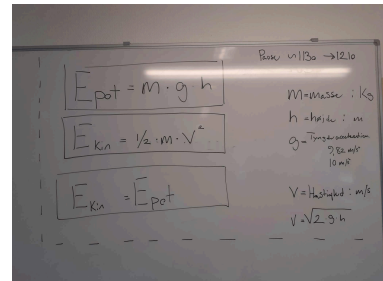 Pause ∽ 1130 → 12.10
E pot = m · g · h
E kin = 1/2 · m · V²
E kin = E pot
m = masse : Kg
h = højde : m
g = Tyngdeacceleration
9,82 m/s
10 m/s
V = Hastighed : m/s
V = √2 · g · h